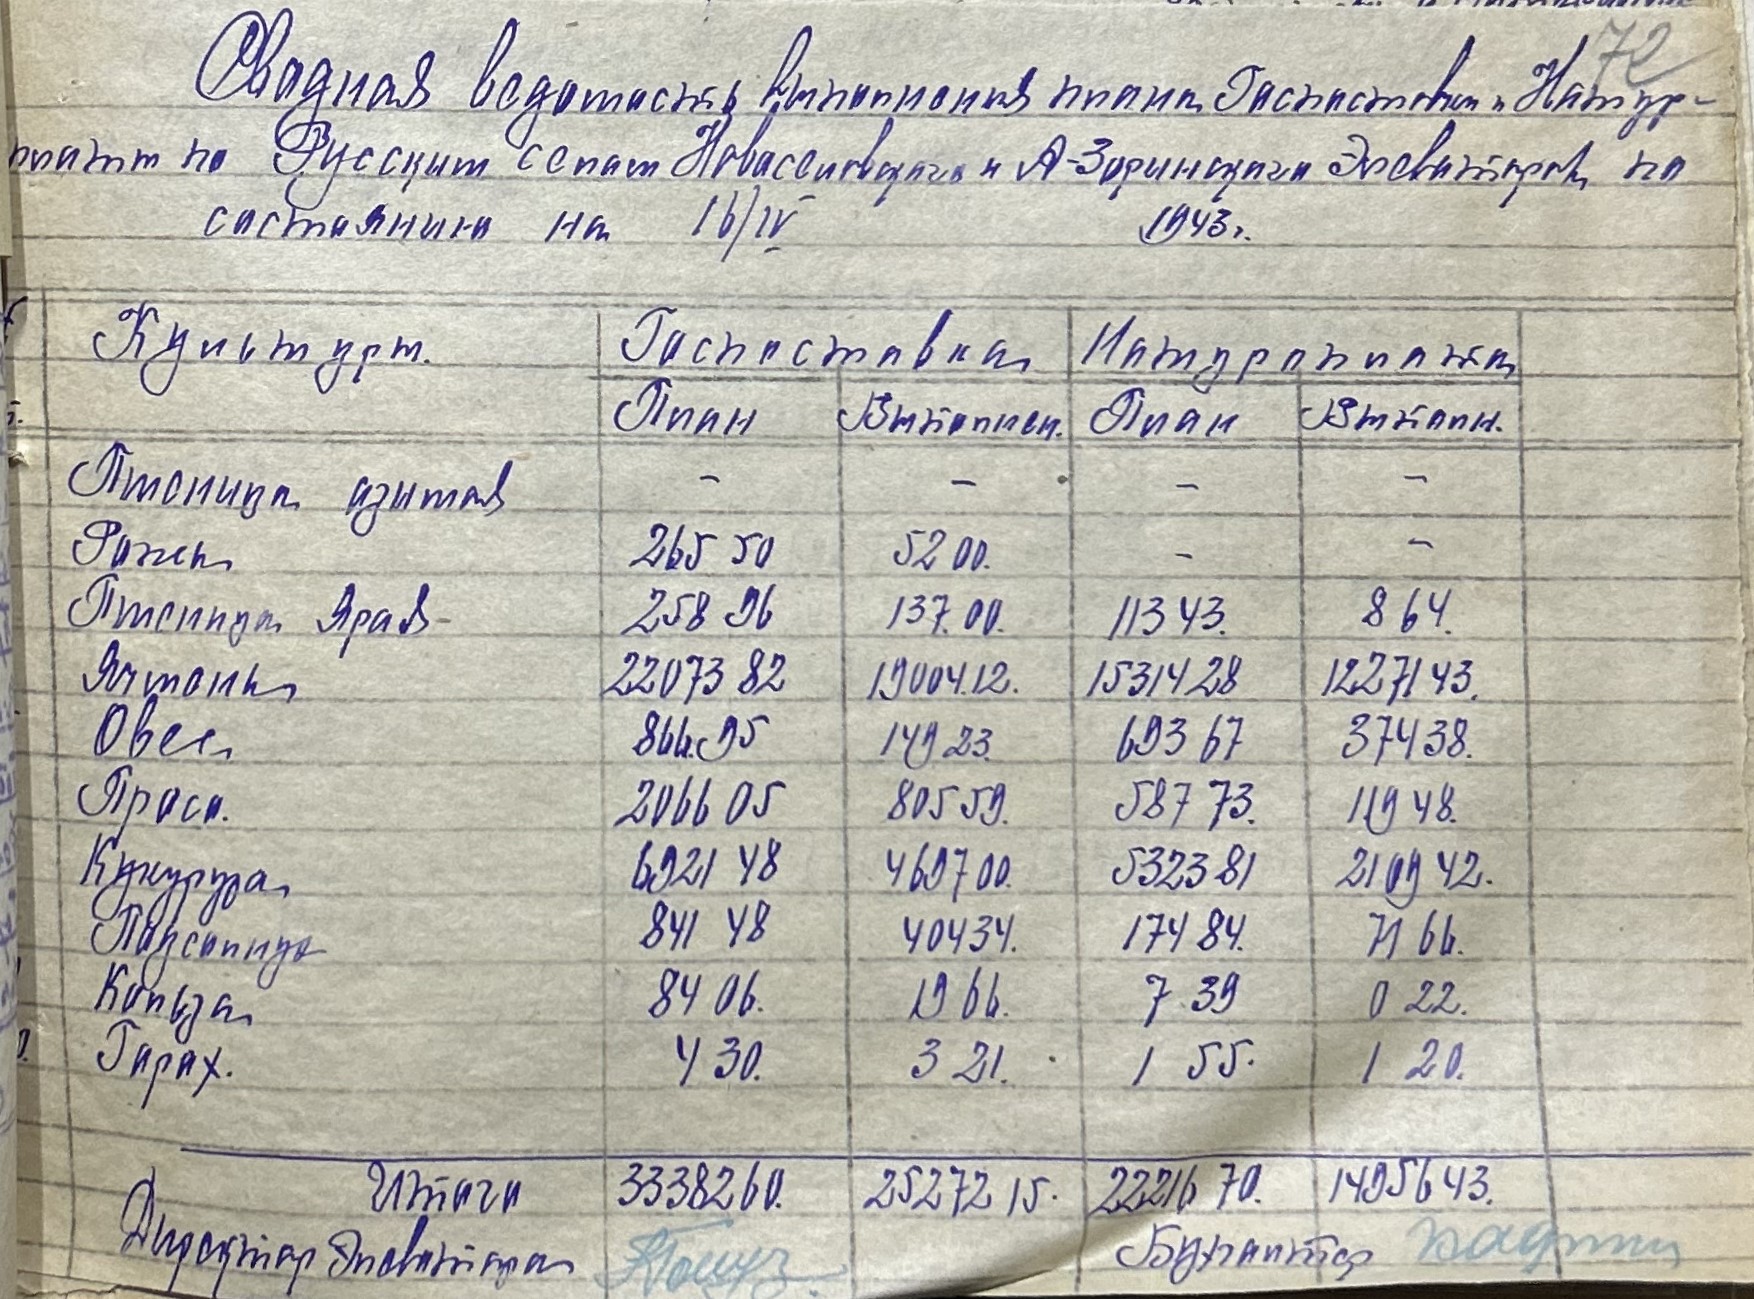 72
Сводная ведомость выполнения плана Госпоставки и Натур-
платы по Русским селам Новоселовского и А-Зоринского Элеватора, по
состоянию на 16/IV 1943г.
Культуры. Госпоставка Натуроплата
План Выполнен. План Выполн.
Пшеница озимая - - - -
Рожь 265 50 52 00. - -
Пшеница Яровая 258 96 137.00. 113 43. 8 64.
Ячмень 22073 82 19004.12. 15314 28 12271 43.
Овес 866.95 149 23. 693 67 374 38.
Просо. 2066 05 805 59. 587 73. 119 48.
Кукуруза 6921 48 4697 00. 5323 81 2109 42.
Подсолнух 841 48 404 34. 174 84. 71 66.
Кользa 84 06. 19 66. 7 39 0 22.
Горох. 4 30. 3 21. 1 55. 1 20.
Итого 33382 60. 25272 15. 22216 70. 14956 43.
Директор Элеватора Бухгалтер